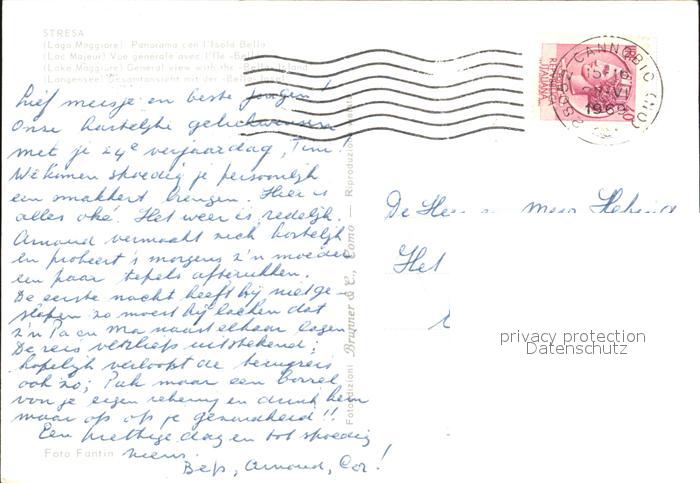 STRESA
(Lago Maggiore) Panorama con l'Isola Bella
(Lac Majeur) Vue generale avec l'Ile -Bella-
(Lake Maggiore) General view with the -Bella- Island
(Langensee) Gesamtansicht mit der -Bella- Insel
Lief meisje en beste jongen!
Onze hartelijke gelukwensen
met je 24e verjaardag, Tini!
We komen spoedig je persoonlijk
een smakkert brengen. Hier is
alles oké. Het weer is redelijk.
Arnoud vermaakt zich hartelijk
en probeert 's morgens z'n moeder
een paar tepels af te rukken.
De eerste nacht heeft hij niet ge-
slapen zo moest hij lachen dat
z'n Pa en Ma naast elkaar lagen
De reis verliep uitstekend;
hopelijk verloopt de terugreis
ook zo; Pak maar een borrel
van je eigen rekening en drink hem
maar op op je gezondheid!!
Een prettige dag en tot spoedig
ziens.
Bep, Arnoud, Cor!
Foto Fantin
Fotoedizioni Brunner & C., Como — Riproduzione
28052 CANNOBIO (NO)
15-16
VI
1969
ITALIANA
De Heer en Mevr
Het
privacy protection
Datenschutz